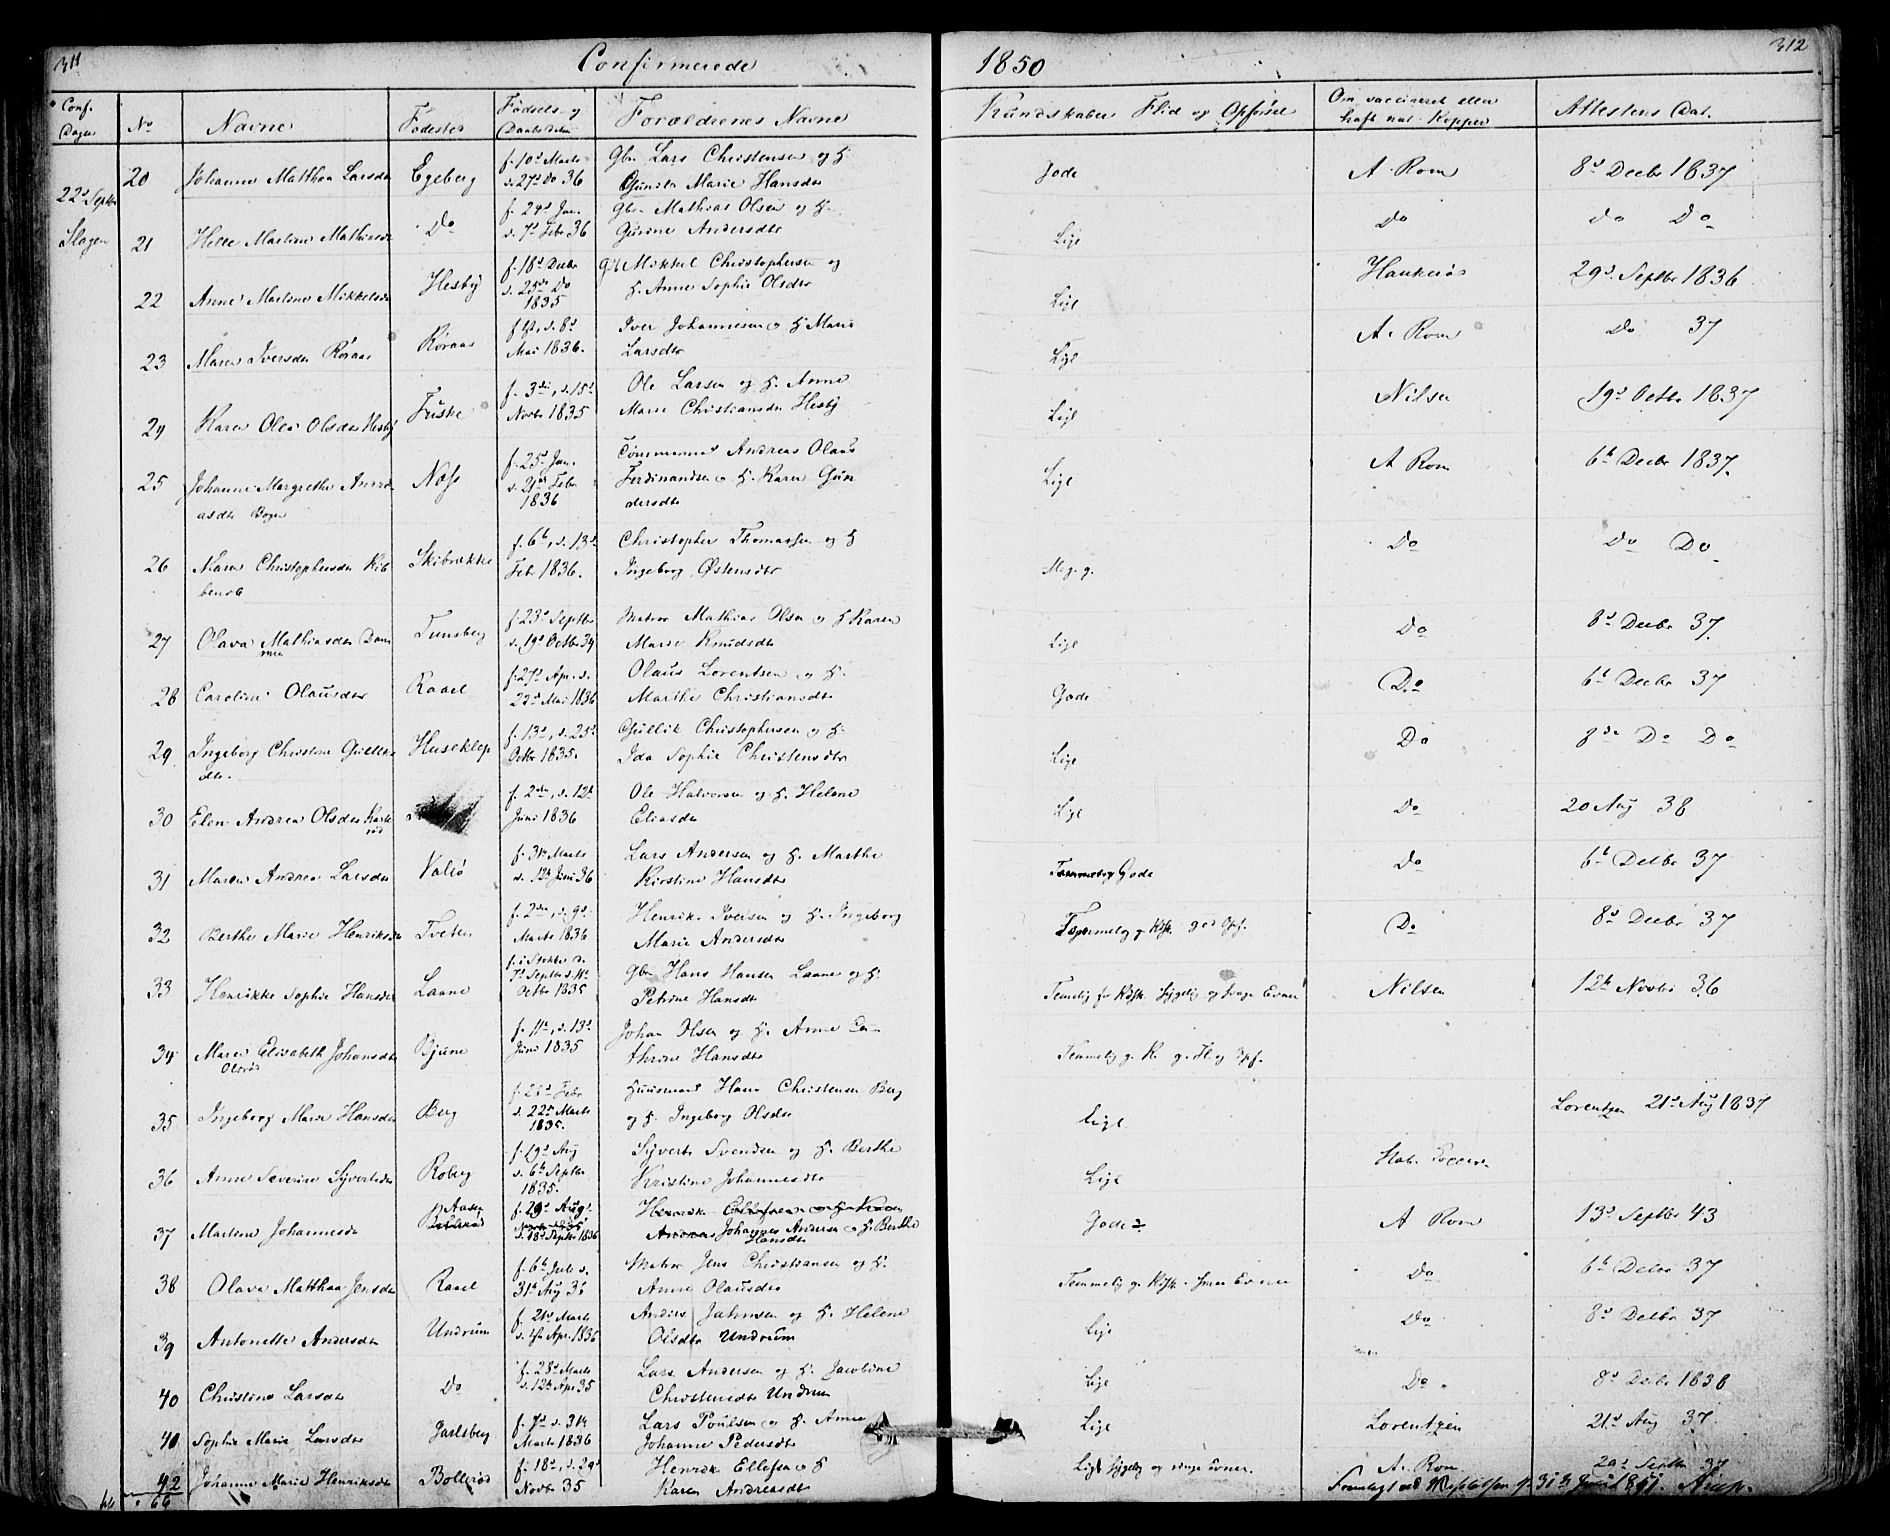 311 Confirmerede 1850 312
Conf. Dagen No Navne Fødested Fødsels- og Daabsdatum Forældrenes Navne Kundskaber Flid og Opførsel Om vaccineret eller haft nat. Kopper Attestens Dat.
22d Septbr Slagen
20 Johanne Matthea Larsdtr Egeberg f. 10d Marts d. 27d Do 36 Gbr. Lars Christensen og H. Gunild Marie Hansdtr Gode A. Rom 8d Decbr 1837
21 Helle Martine Mathiasdtr Do f. 24d Jan. d. 7d Febr 36 Gbr. Mathias Olsen og H. Gurine Andersdtr Lige Do do Do
22 Anne Martine Mikkelsdtr Hesby f. 18d Decbr d. 25de Do 1835 Gbr Mikkel Christophersen og H. Anne Sophie Olsdtr Lige Haukerøe 29d Septbr 1836
23 Maren Iversdtr Røraas Røraas f 4d, d. 8d Mai 1836. Iver Johannesen og H Marie Larsdtr Lige A. Rom Do 37
24 Karen Olea Olsdtr Hesby Fuske f. 3die, d. 15d Novbr 1835 Ole Larsen og H. Anne Marie Christiansdtr Hesby Lige Nilsen 19d Octbr 1837
25 Johanne Margrethe Andreasdtr Bogen Næss f. 25d Jan. d. 21de Febr 1836 Tømmermand Andreas Olaus Ferdinandsen og H. Karen Gundersdtr Lige A Rom 6te Decbr 1837.
26 Maren Christophersdtr Skibrække f. 6te, d. 13d Febr 1836. Christopher Thomassen og H Ingeborg Østensdtr Meg. g. Do Do Do
27 Olava Mathiasdtr Dammen Tunsberg f. 23d Septbr d. 19d Octbr 34 Matros Mathias Olsen og H Karen Marie Knudsdtr Lige Do 8d Decbr 37
28 Caroline Olausdtr Raael f. 27d Apr. d. 22d Mai 1836 Olaus Lorentsen og H. Marthe Christiansdtr Gode Do 6te Decbr 37
29 Ingeborg Christine Gulliksdtr. Huseklep f. 13d, d. 25d Octbr 1835. Gullik Christophersen og H. Ida Sophie Christensdtr Lige Do 8de Do Do
30 Elen Andrea Olsdtr f. 2den, d. 12te Juni 1836 Ole Halvorsen og H. Helene Eliasdtr Lige Do 20 Aug 38
31 Maren Andrea Larsdtr Valiø f. 31te Marts d. 12te Juni 36 Lars Andersen og H. Marthe Kirstine Hansdtr Temmelig Gode Do 6te Decbr 37
32 Berthe Marie Henriksdtr Tveten f. 2den, d. 9d Marts 1836 Henrik Iversen og H. Ingeborg Marie Andersdtr Temmelig g. Kdsk. god Opf. Do 8d Decbr 37
33 Henrikke Sophie Hansdtr Laane f. i Stokke d. 7d Septbr d. 11te Octbr 1835 Gbr Hans Hansen Laane og H. Petrine Hansdtr Temelig g. Kdsk. Sygelig og svage Evner Nilsen 12te Novbr 36
34 Maren Elisabeth Johansdtr Olsrød Bjune f. 11te, d. 13d Juni 1835 Johan Olsen og H. Anne Cathrine Hansdtr Temmelig g. K. g. Fl. og Opf.
35 Ingeborg Marie Hansdtr Berg f. 21d Febr d. 22de Marts 1835. Huusmand Hans Christensen Berg og H. Ingeborg Olsdtr Lige Lorentzen 21d Aug 1837
36 Anne Severine Syvertsdtr Roberg f. 19d Aug d. 6te Septbr 1835. Syvert Svendsen og H Berthe Kristine Johannesdtr Lige
37 Martine Johannesdtr Aasen f. 29d Aug d. 18d Septbr 1836 Johannes Andersen og H Berthe Hansdtr Gode A Rom 13d Septbr 43
38 Olava Matthea Jensdtr Raael f. 6te Juli d. 31te Aug 35 Matros Jens Christiansen og H. Anne Olausdtr Temmelig g. Kdsk. smaa Evner Do 6te Decbr 37
39 Antonette Andersdtr Undrum f. 21d Marts d. 4de Apr. 1836 Anders Jahnsen og H. Helene Olsdtr Undrum Lige Do 8d Decbr 37
40 Christine Larsdtr Do f. 28d Marts d. 12te Apr 35 Lars Andersen og H. Jacobine Christensdtr Undrum Lige Do 8d Decbr 1838
40 Sophie Marie Larsdtr Jarlsberg f. 7d d. 31te Marts 1836 Lars Poulsen og H. Anne Johanne Pedersdtr Lige Lorentzen 21d Aug 37
42 Johanne Marie Henriksdtr Bollerød f. 18d, d. 29d Novbr 35 Henrik Ellefsen og H Karen Andreasdtr Lige Sygelig og svage Evner. A. Rom 29d Septbr 37
66 Fremlagt ved